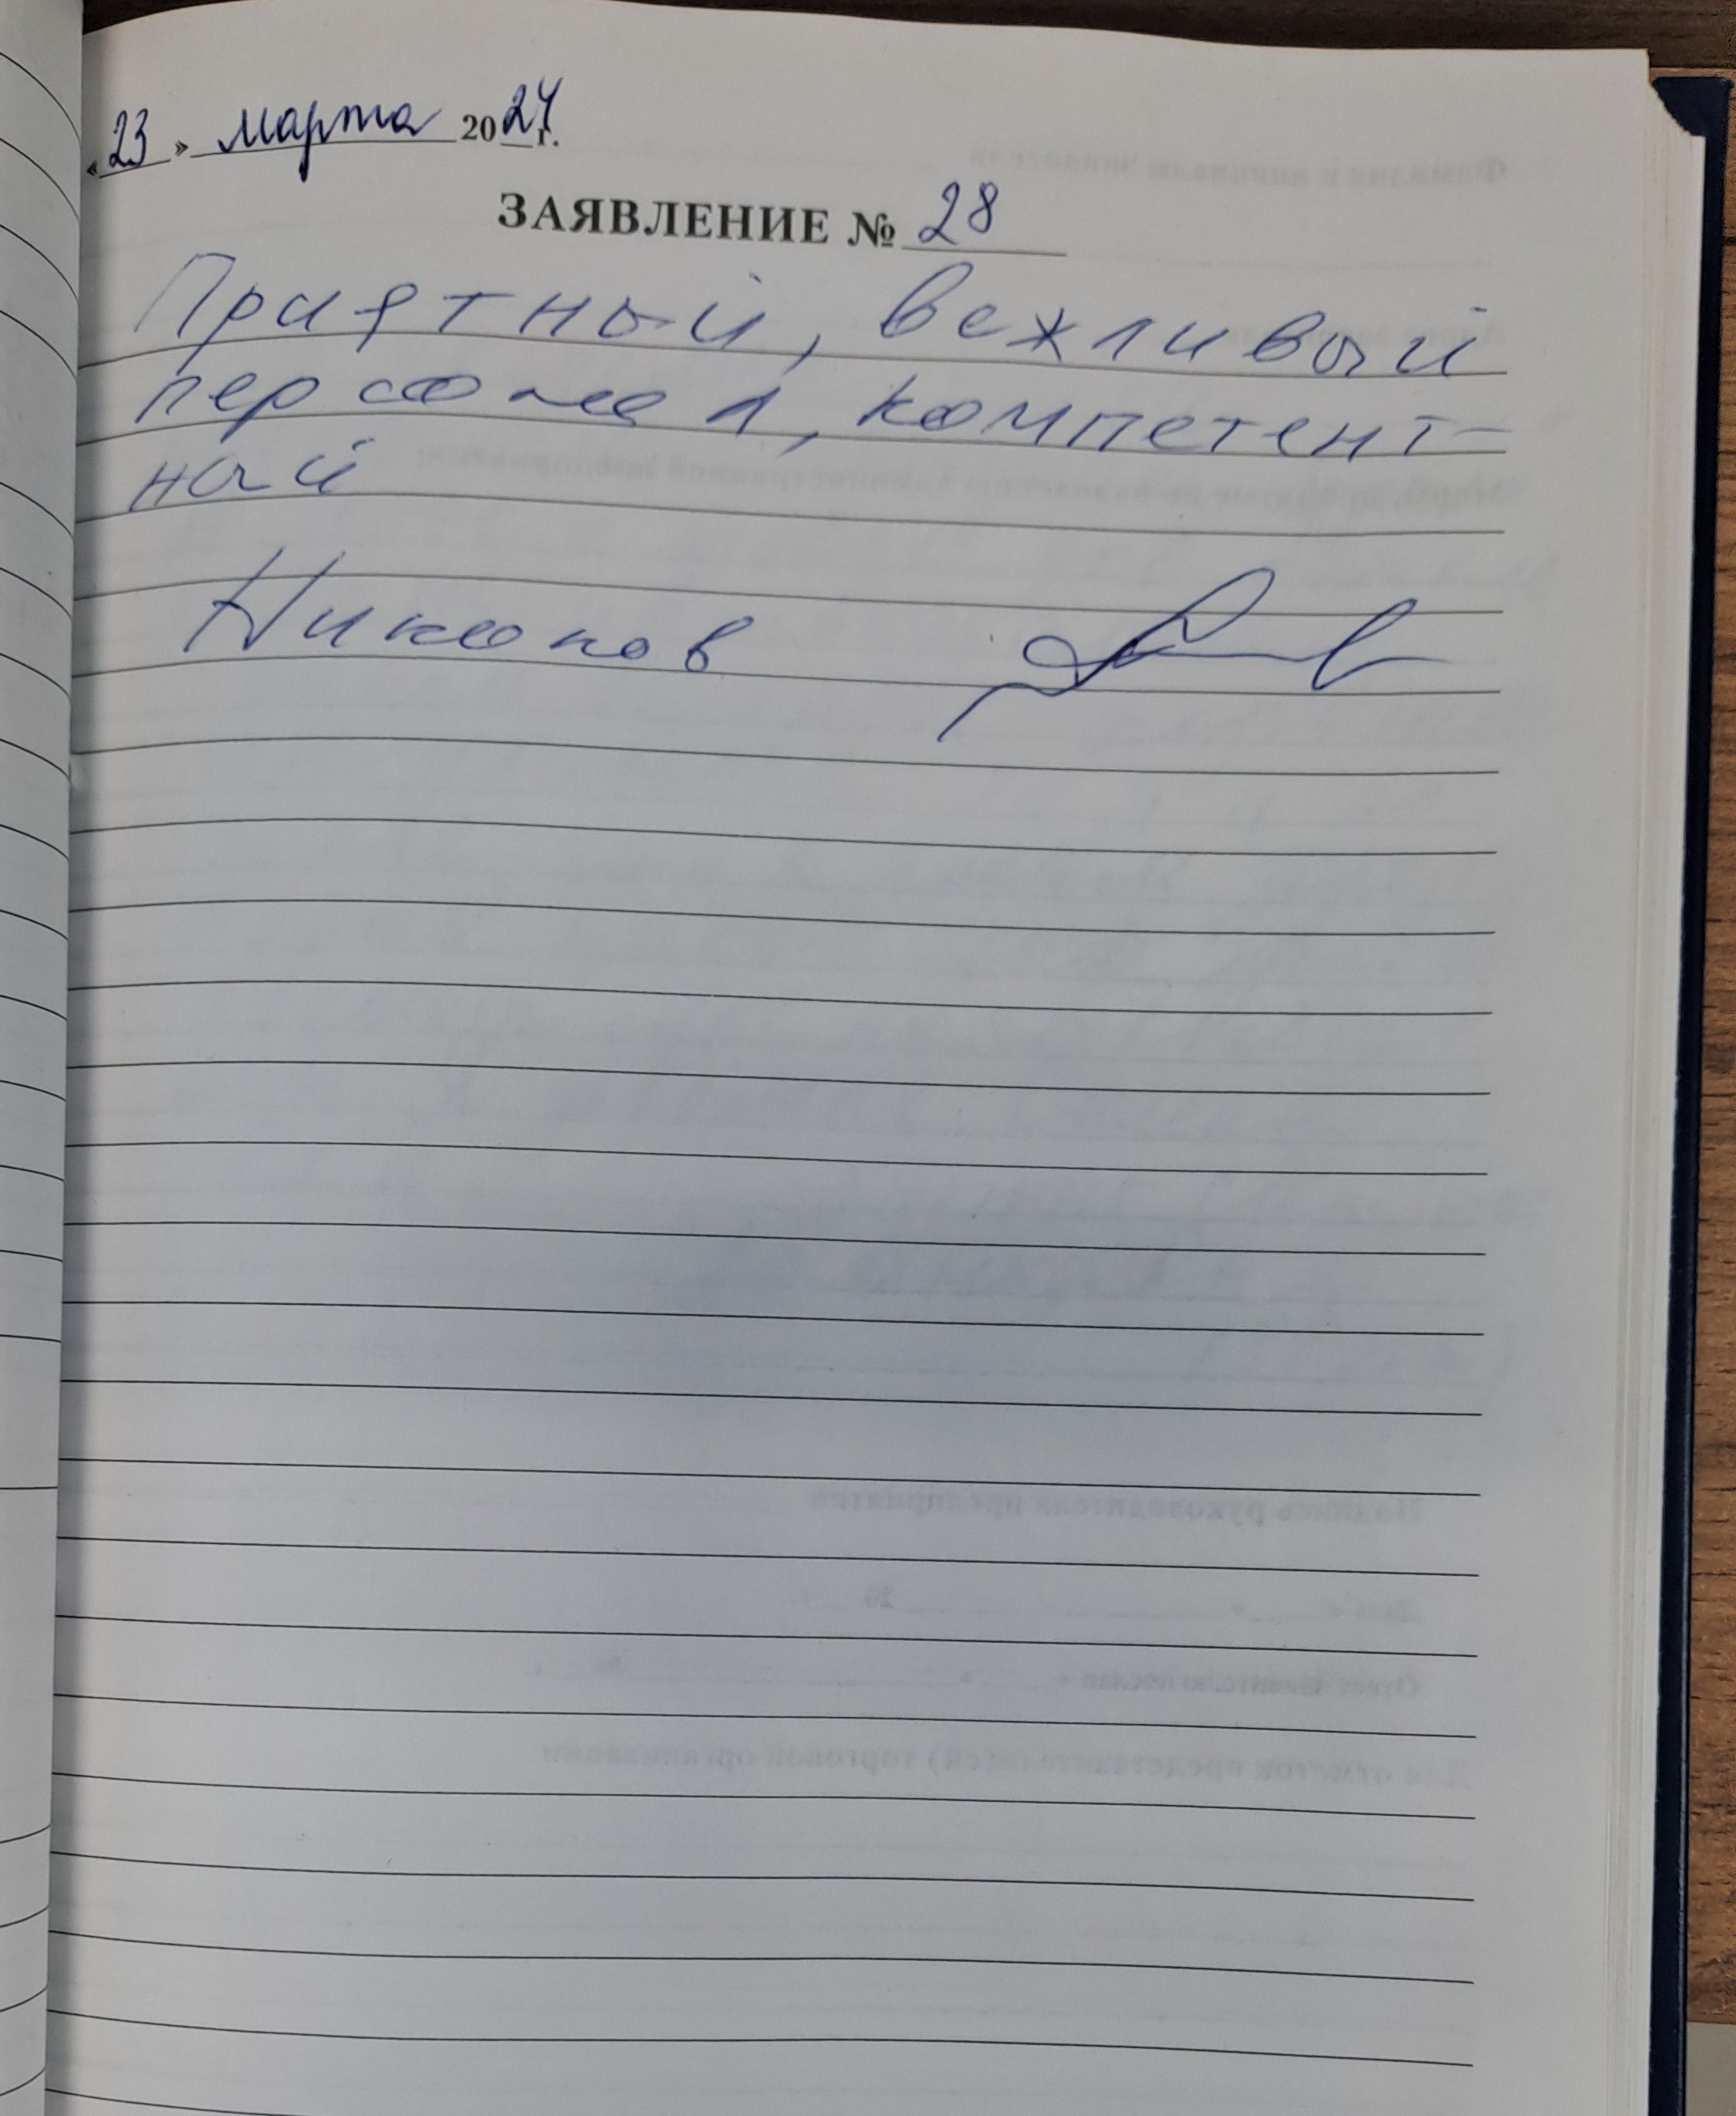 «23» марта 2024 г.
ЗАЯВЛЕНИЕ № 28
Приятный, вежливый
персонал, компетент-
ный
Никонов